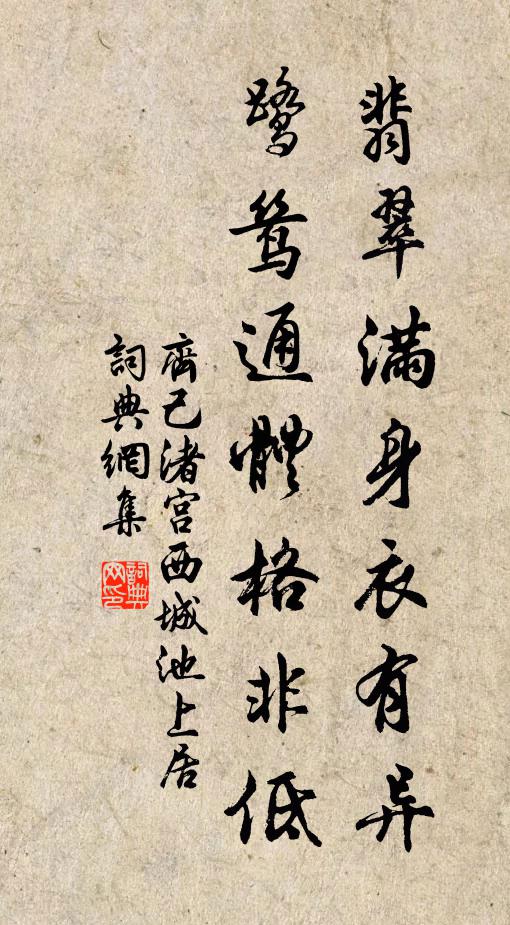 翡翠满身衣有异
鹭鸶通體格非低
齊己渚宫西城池上居
詞典網集
詞典网印